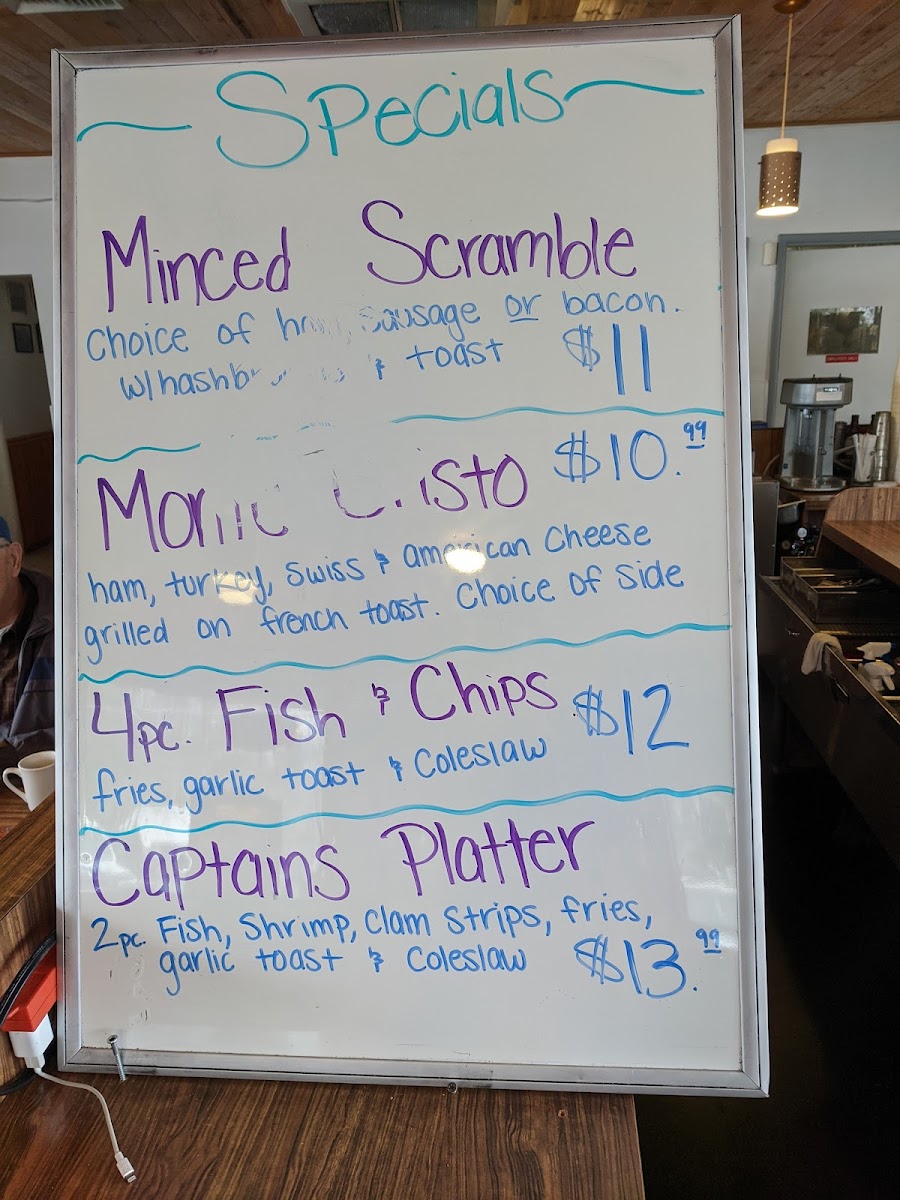 Specials
Minced Scramble
Choice of ham, sausage or bacon.
w/hashbr & toast $11
Monte Cristo $10.99
ham, turkey, swiss & american cheese
grilled on french toast. Choice of side
4pc. Fish & Chips $12
fries, garlic toast & Coleslaw
Captains Platter
2pc. Fish, Shrimp, Clam Strips, fries,
garlic toast & Coleslaw $13.99